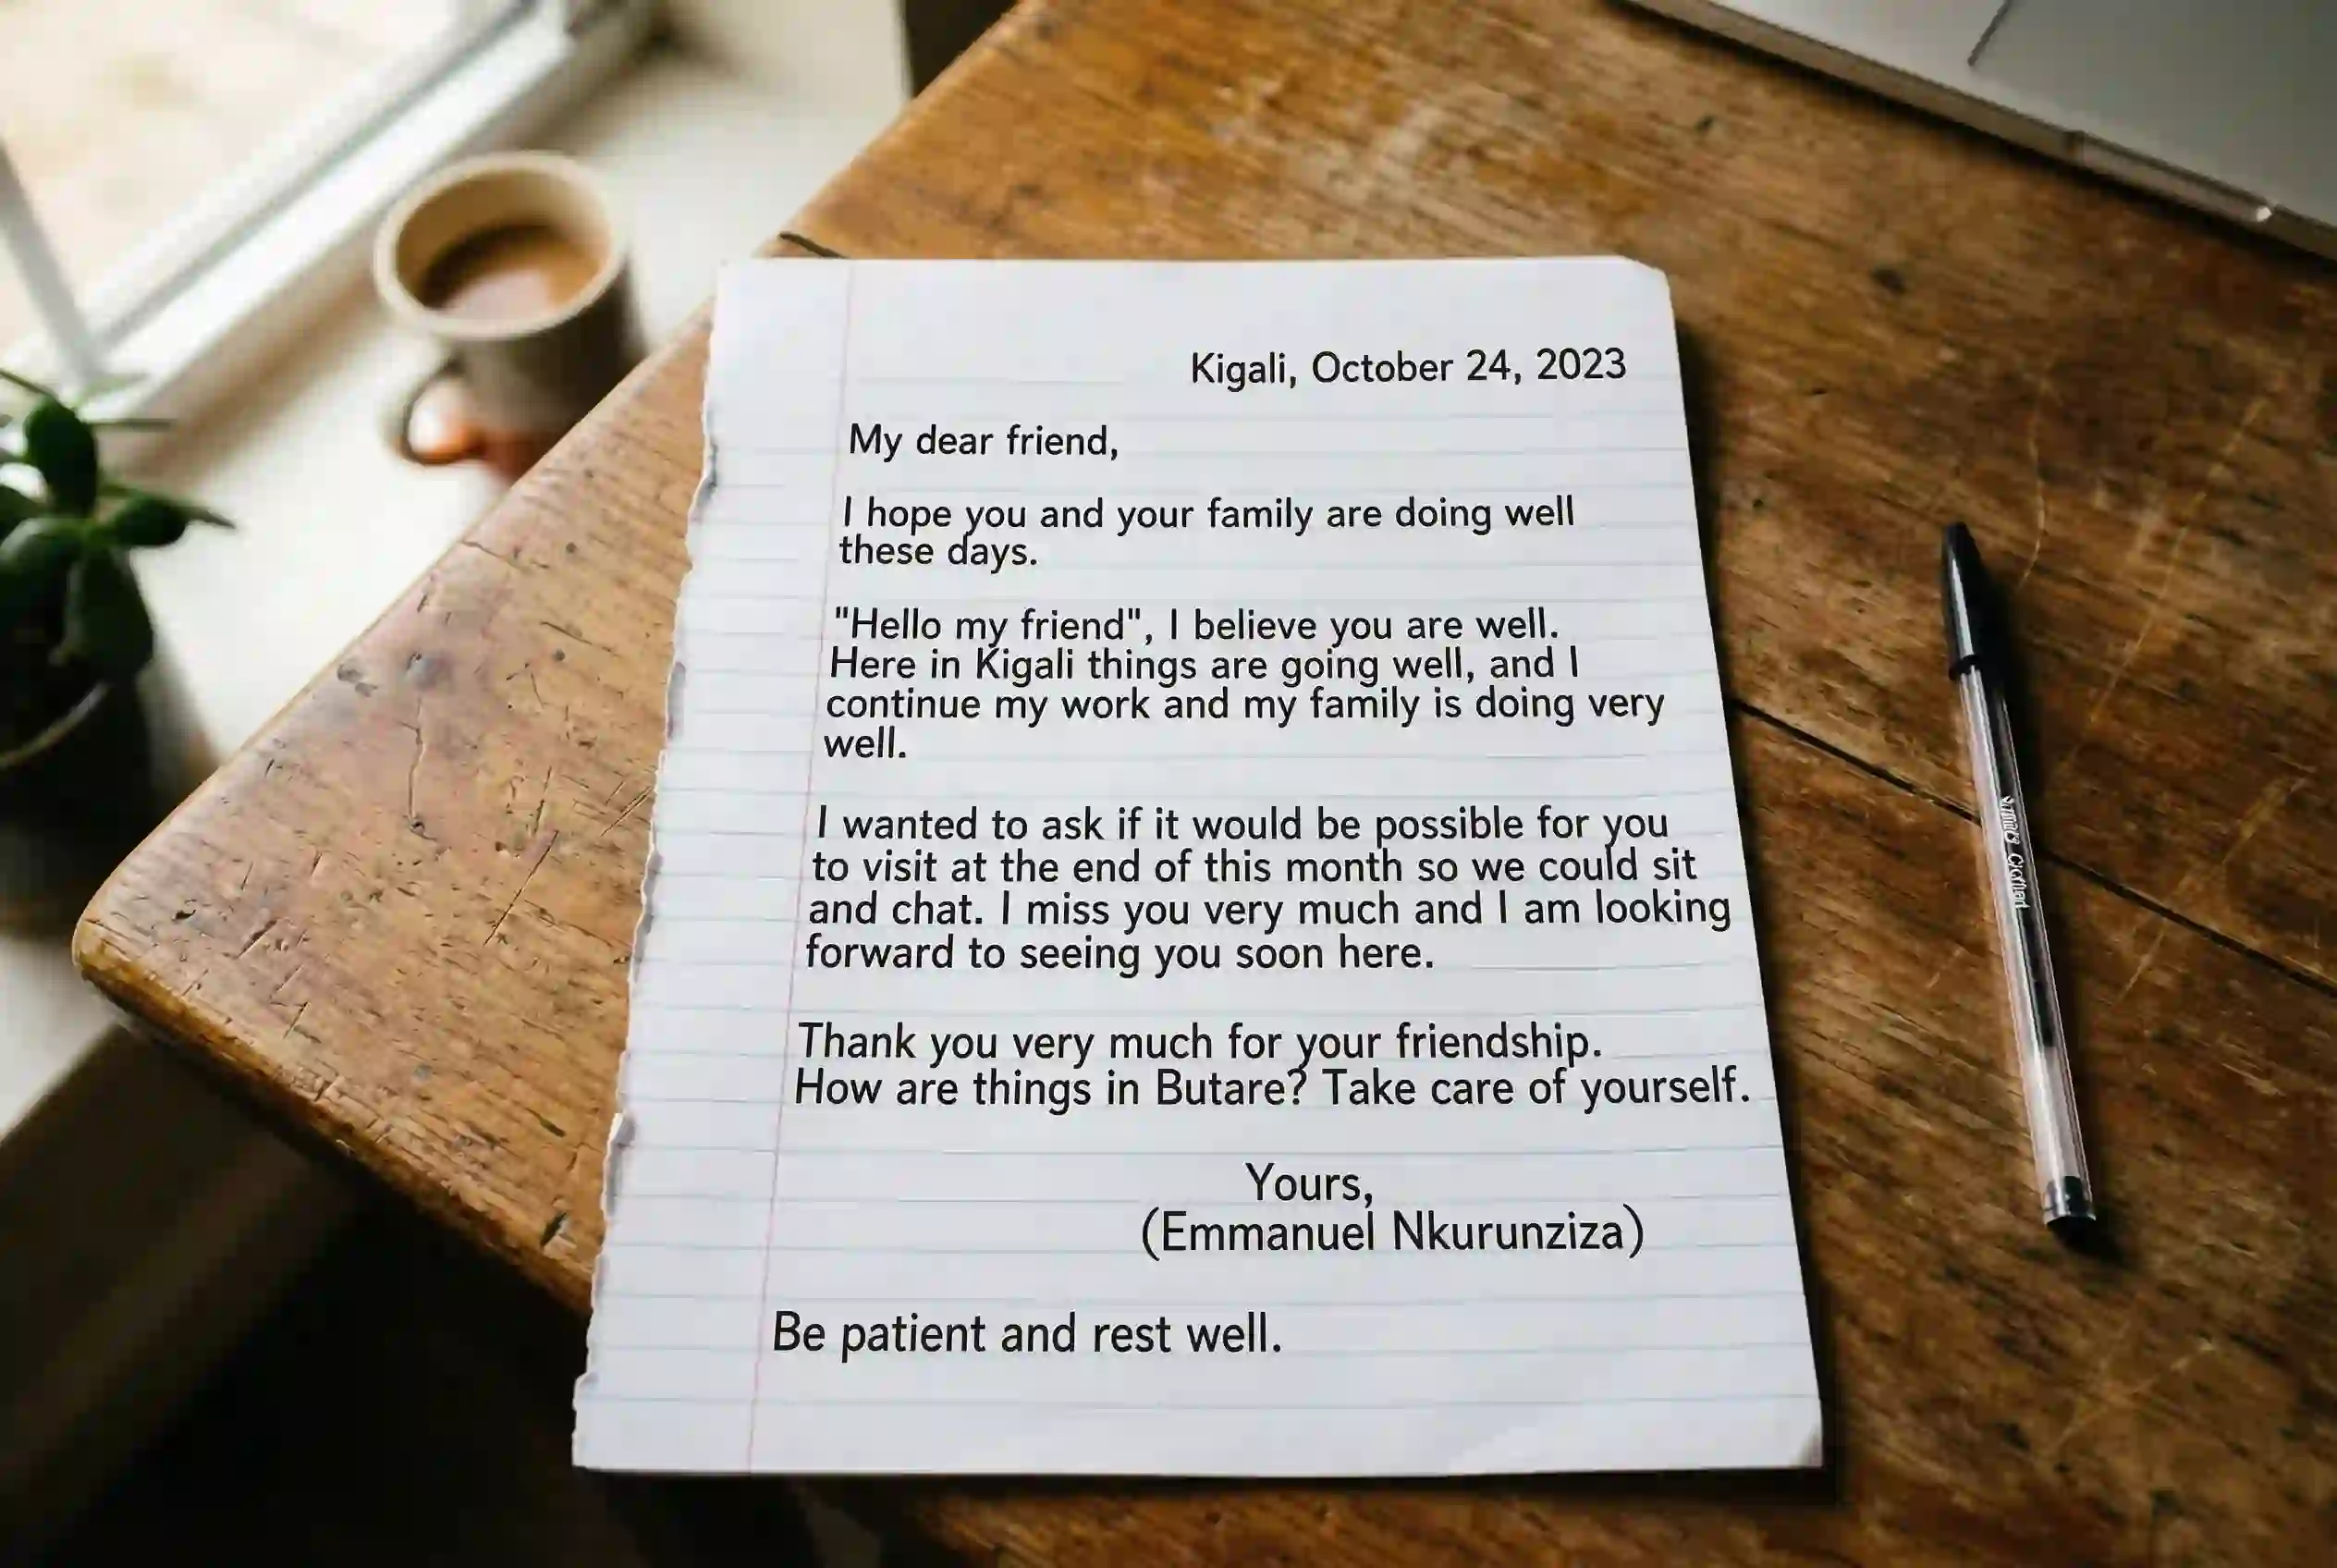 Kigali, October 24, 2023
My dear friend,
I hope you and your family are doing well
these days.
"Hello my friend", I believe you are well.
Here in Kigali things are going well, and I
continue my work and my family is doing very
well.
I wanted to ask if it would be possible for you
to visit at the end of this month so we could sit
and chat. I miss you very much and I am looking
forward to seeing you soon here.
Thank you very much for your friendship.
How are things in Butare? Take care of yourself.
Yours,
(Emmanuel Nkurunziza)
Be patient and rest well.